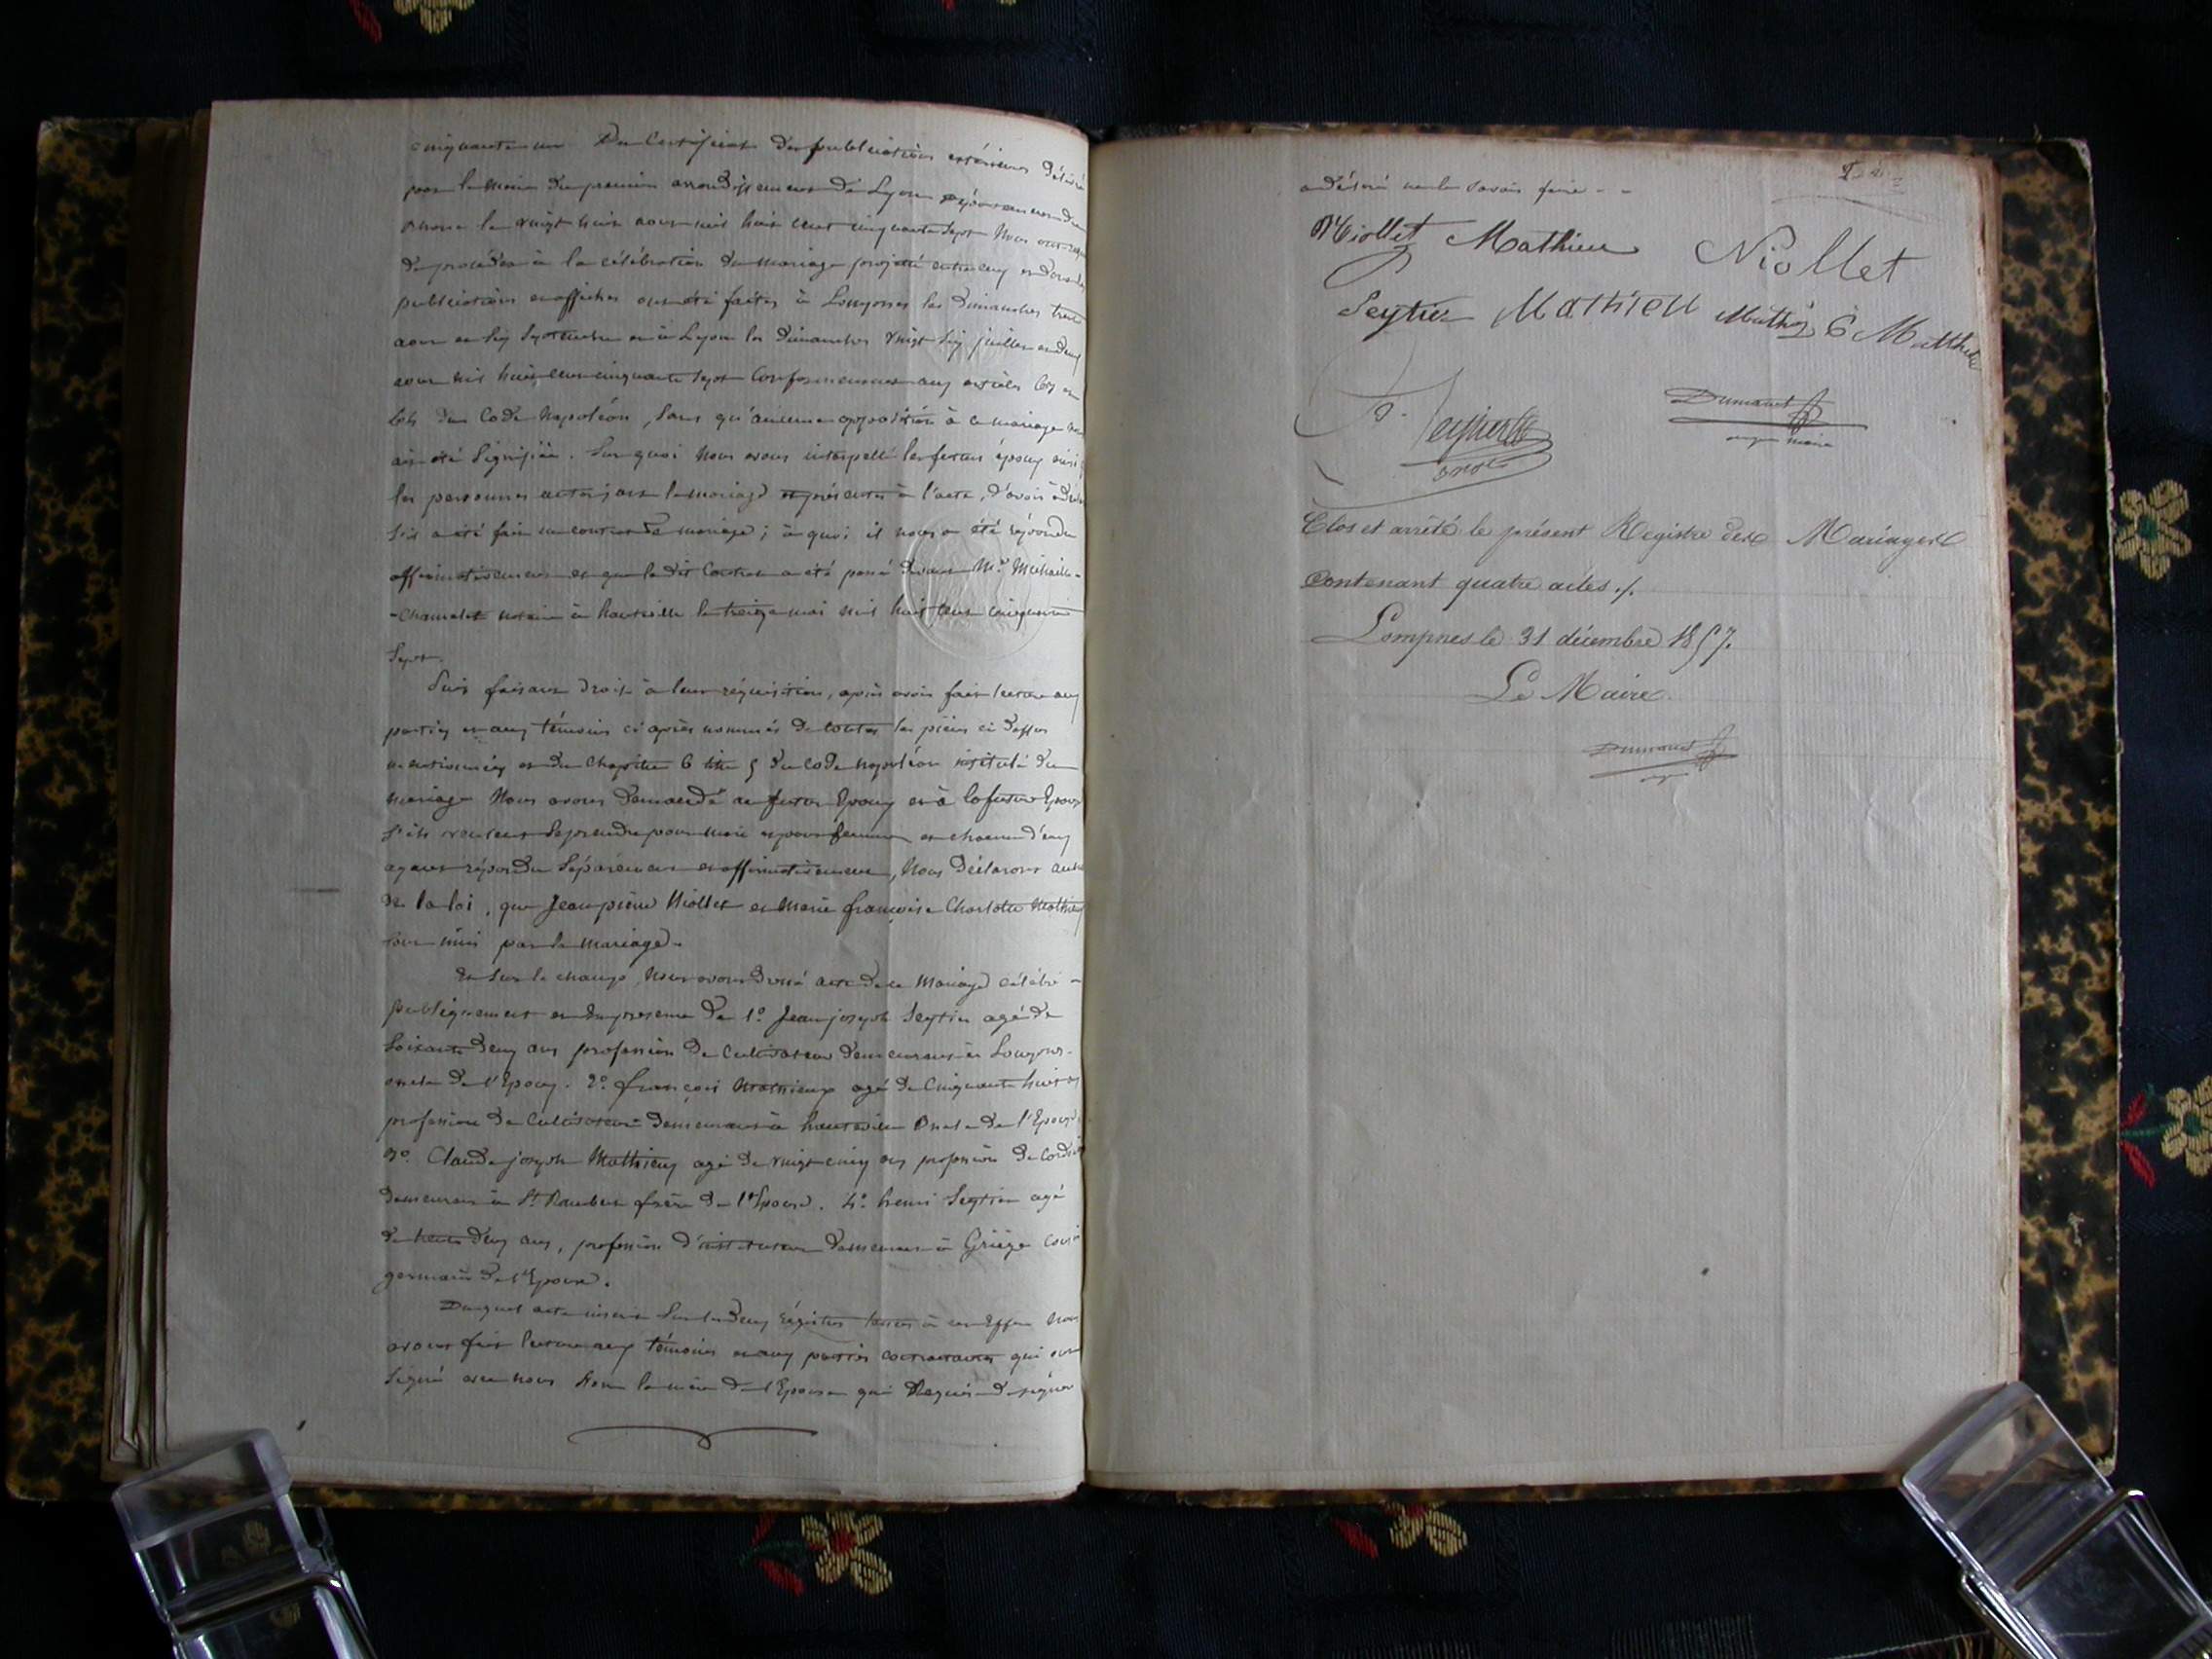 cinquante un Du Certificat des publications extérieures délivré
par le Maire du premier arrondissement de Lyon département du
Rhone le vingt huit aout mil huit cent cinquante sept Nous ont requis
de procéder à la célébration du mariage projetté entr'eux et dont les
publications et affiches ont été faites à Lompnes les Dimanches trente
aout et six Septembre et à Lyon les Dimanches vingt six juillet et deux
aout mil huit cent cinquante sept Conformément aux articles 63 et
64 du Code Napoléon, sans qu'aucune opposition à ce mariage nous
ait été Signifiée. Sur quoi Nous avons interpellé les futurs époux ainsi
les personnes autorisant le mariage et présentes à l'acte, d'avoir à
s'il a été fait un contrat de mariage ; à quoi il nous a été répondu
affirmativement et que le dit Contrat a été passé devant Me
-Chamelet notaire à hauteville le treize mai mil huit cent cinquante
Sept.
Puis faisant droit à leur réquisition, après avoir fait lecture aux
parties et aux témoins ci après nommés de toutes les pièces ci dessus
mentionnées et du Chapitre 6 titre 5 du Code Napoléon intitulé du
mariage Nous avons demandé au futur Epoux et à la future Epouse
s'ils veulent se prendre pour mari et pour femme et chacun d'eux
ayant répondu Séparément et affirmativement, Nous Déclarons au
de la loi, que Jean pierre Niollet et Marie françoise Charlotte Mathieu
sont unis par le mariage.
Et Sur le champ, Nous avons dressé acte de ce Mariage célébré
publiquement et En présence de 1º Jean joseph Seytier agé de
Soixante deux ans profession de Cultivateur demeurant à Lompnes
oncle de l'Epoux. 2º françois Mathieux agé de Cinquante huit ans
profession de Cultivateur demeurant à hauteville Oncle de l'Epouse
3º Claude joseph Mathieux agé de vingt cinq ans profession de
demeurant à St Rambert frère de l'Epouse. 4º henri Seytier agé
de trente deux ans, profession d'instituteur demeurant à Griège Cousin
germain de l'Epoux.
Duquel acte inscrit Sur les deux Régistres tenus à cet Effet Nous
avons fait lecture aux témoins et aux parties contractantes qui ont
Signé avec nous hors la mère de l'Epouse qui Requise de signer
a déclaré ne le savoir faire - -
Niollet Mathieu Niollet
Seytier Mathieu Mathieu
Dumanet
maire
Clos et arrêté le présent Registre des Mariages
Contenant quatre actes ./.
Lompnes le 31 décembre 1857.
Le Maire
Dumanet